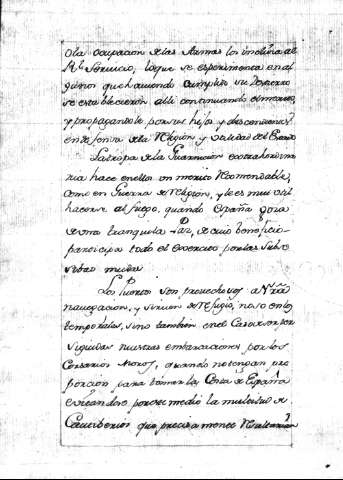 ó la ocupacion de las Armas los inclina al
Rl. Servicio, lo que se experimenta en al
gunos que haviendo cumplido su Destierro
se establecieron alli continuando el merito,
y propagandole por sus hijos y descendientes
en defensa de la Religion, y utilidad del Estado
La tropa de la Guarnicion extraordina
ria hace en ellos un merito recomendable,
como en Guerra de Religion, y les es mui util
hacerse al fuego, quando España goza
de una tranquila Paz, de cuio beneficio
participa todo el Exercito por las
mudas
Los Puertos son provechosos á Nra
navegacion, y sirven de refugio, no solo en los
temporales, sino tambien en el Caso de ser per
seguidas nuestras embarcaciones por los
Corsarios Moros, quando no tengan pro
porcion para tomar la Costa de España
evitandose por este medio la multitud de
Cautiverios que precisamente resultarian